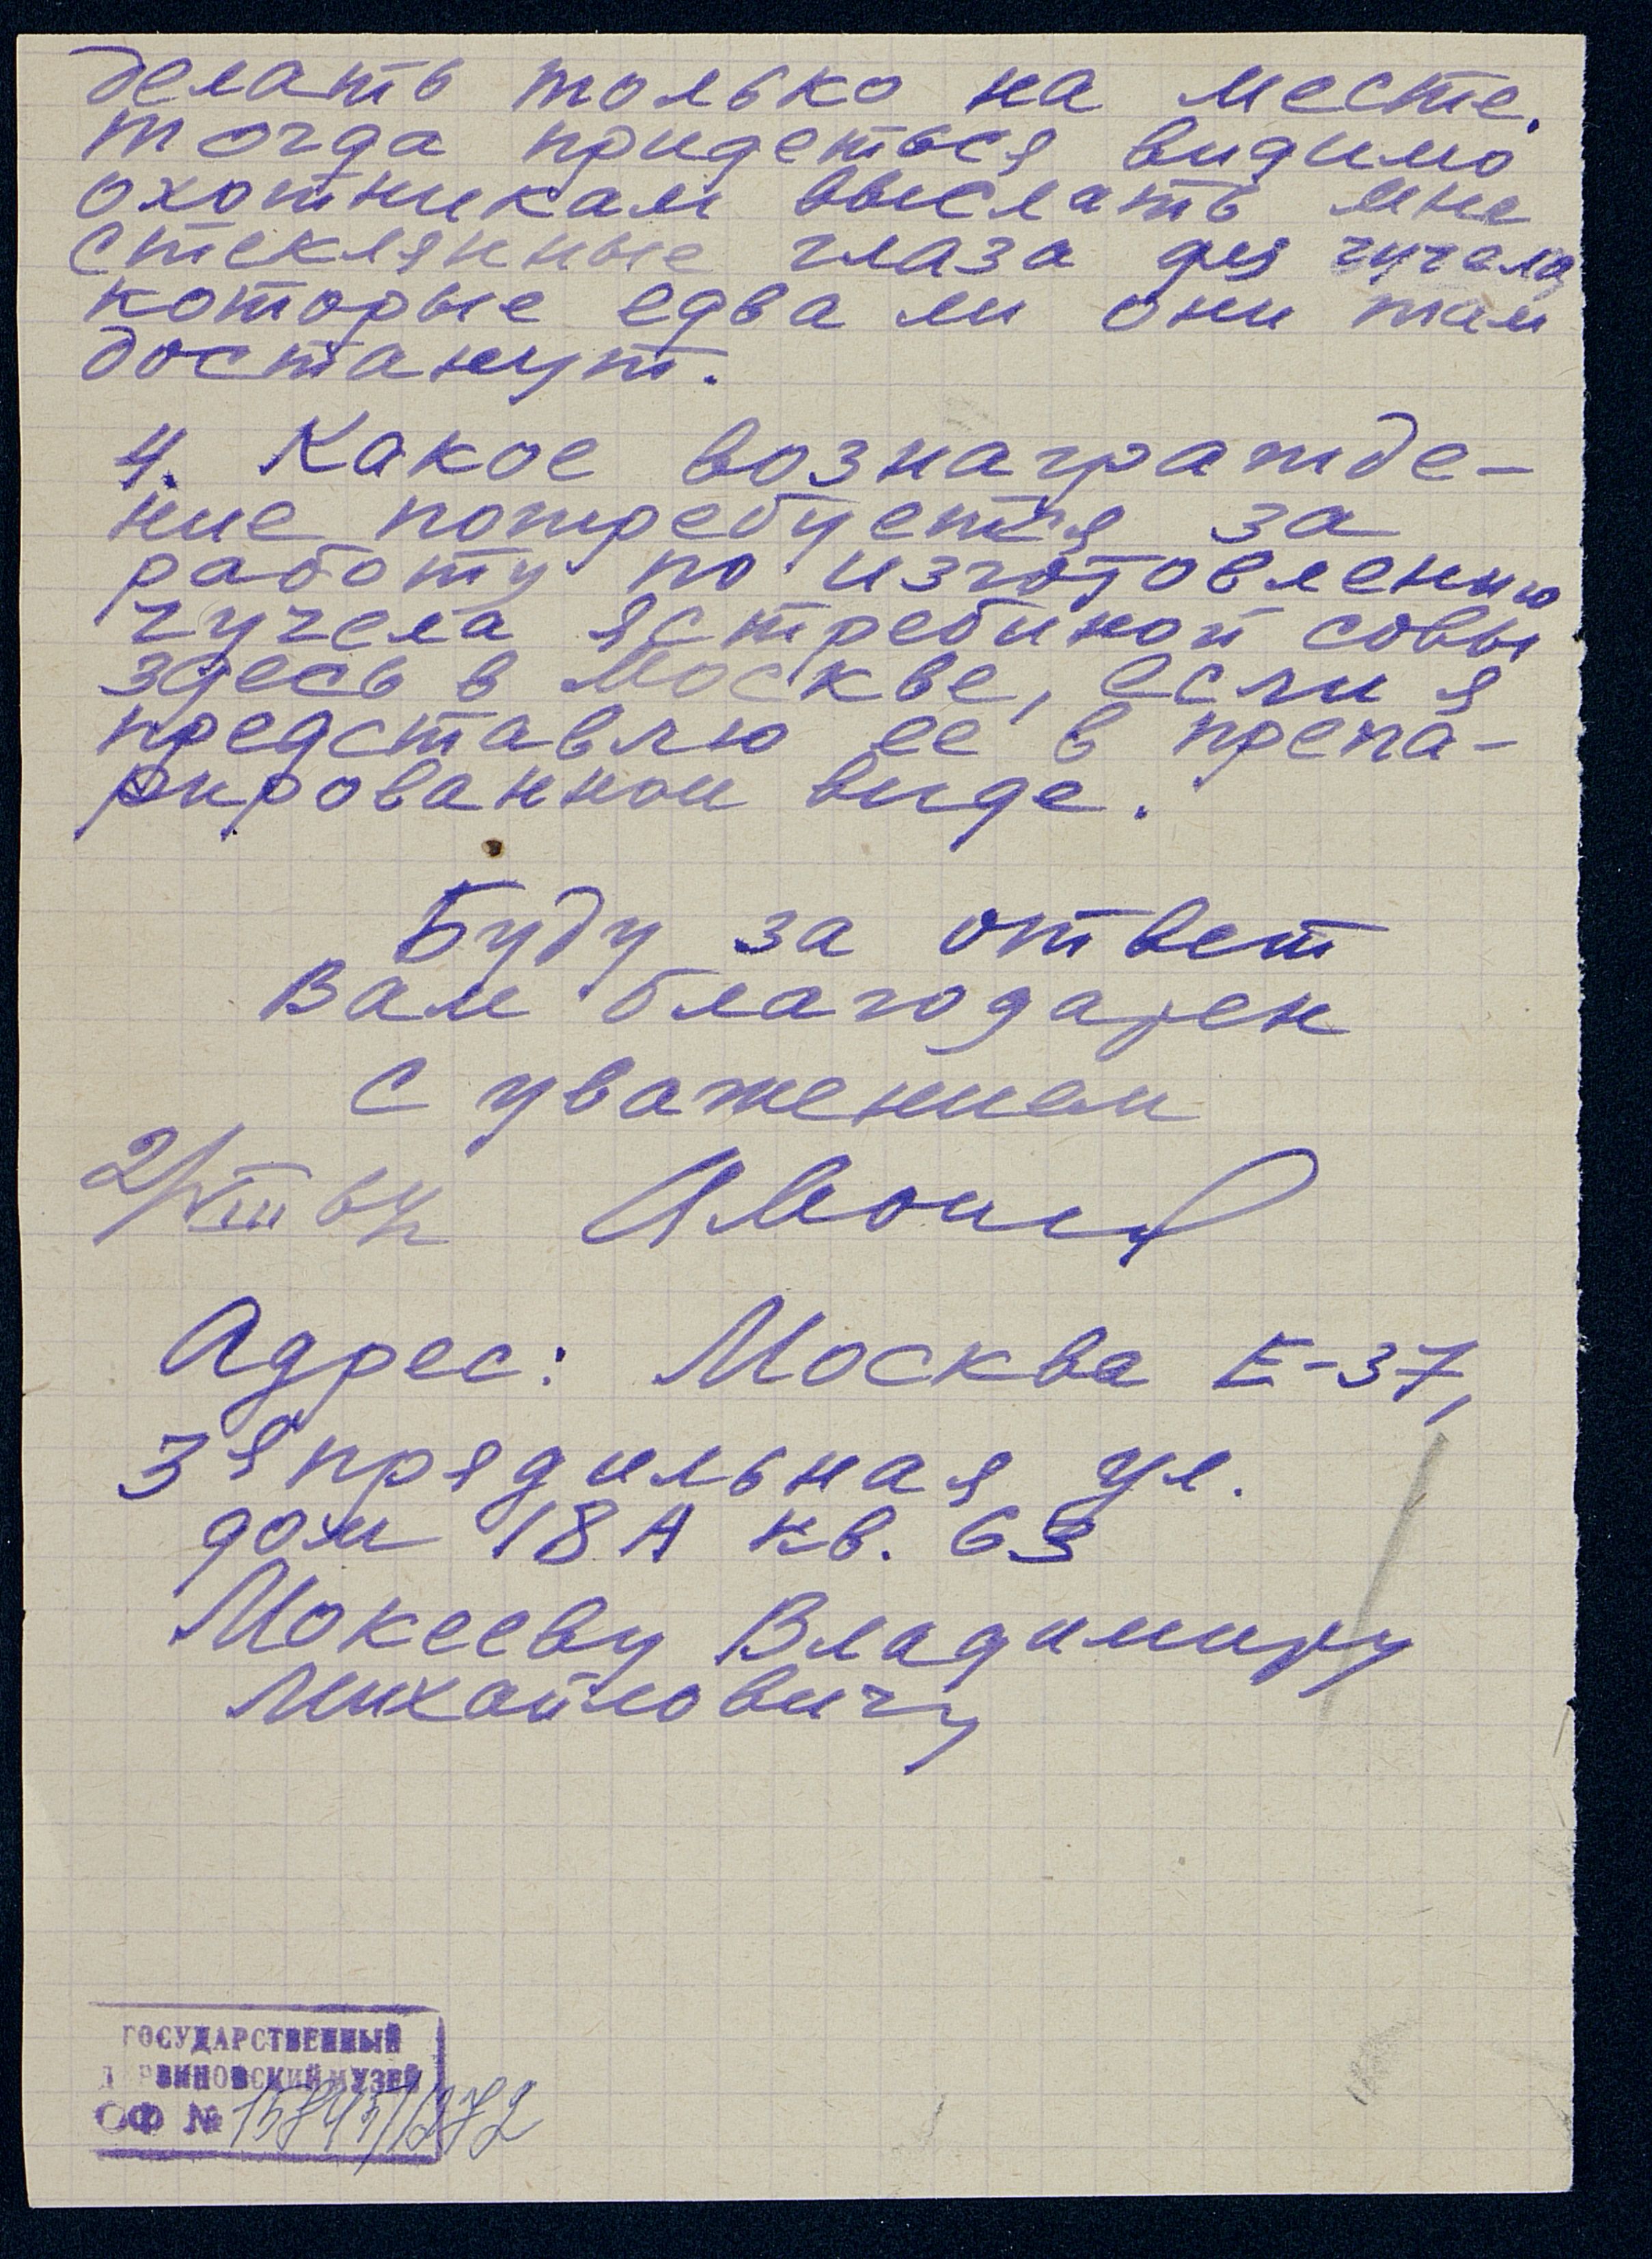 делать только на месте.
тогда придеться видимо
охотникам выслать мне
стеклянные глаза для чучела
которые едва ли они там
достанут.
4. Какое вознагражде-
ние потребуется за
работу по изготовлению
чучела ястребиной совы
здесь в Москве, если я
представлю ее в препа-
рированном виде.
Буду за ответ
Вам благодарен
с уважением
2/VIII 64г
Адрес: Москва Е-37,
3я прядильная ул.
дом 18А кв. 63
Мокееву Владимиру
Михайловичу
ГОСУДАРСТВЕННЫЙ
ДАРВИНОВСКИЙ МУЗЕЙ
ОФ №